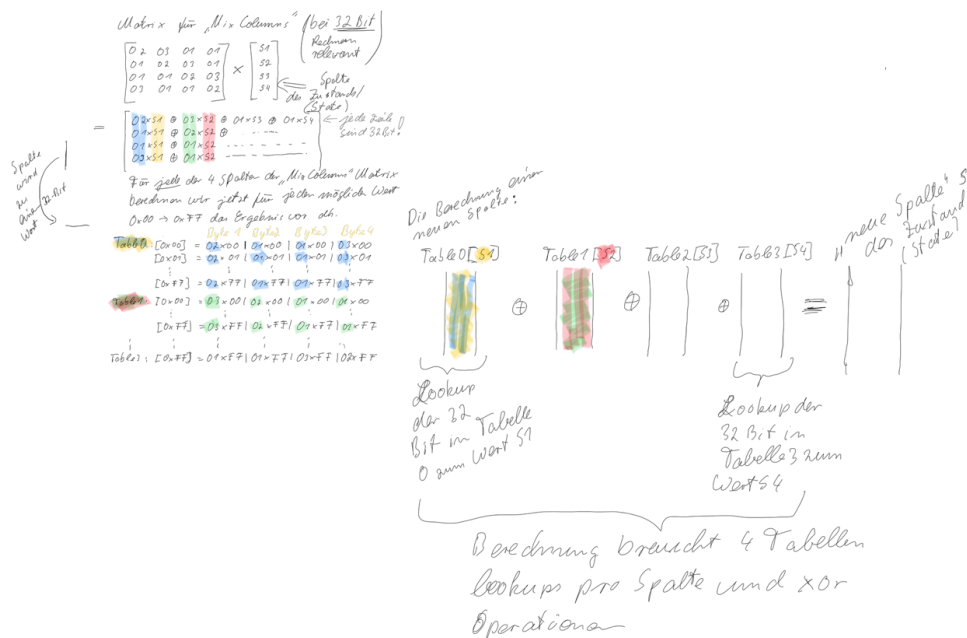 Matrix für „Mix Columns" (bei 32 Bit
Rechnern
relevant)
02 03 01 01
01 02 03 01
01 01 02 03
03 01 01 02
×
S1
S2
S3
S4
Spalte
des Zustands/
(State)
= 02×S1 ⊕ 03×S2 ⊕ 01×S3 ⊕ 01×S4
01×S1 ⊕ 02×S2 ⊕ ......
01×S1 ⊕ 01×S2
03×S1 ⊕ 01×S2
jede Zeile
sind 32Bit!
Spalte
wird
zu
32-Bit
Wort
Für jede der 4 Spalten der „Mix Columns" Matrix
berechnen wir jetzt für jeden mögliche Wert
0x00 → 0xFF das Ergebnis vor. dh.
Byte 1 Byte2 Byte3 Byte4
Table0 [0x00] = 02×00 | 01×00 | 01×00 | 03×00
[0x01] = 02×01 | 01×01 | 01×01 | 03×01
[0xFF] = 02×FF | 01×FF | 01×FF | 03×FF
Table1 [0x00] = 03×00 | 02×00 | 01×00 | 01×00
[0xFF] = 03×FF | 02×FF | 01×FF | 02×FF
Table3: [0xFF] = 01×FF | 01×FF | 03×FF | 02×FF
Die Berechnung einer
neuen Spalte:
Table0[S1] Table1[S2] Table2[S3] Table3[S4]
⊕ ⊕ ⊕ =
„neue Spalte" S
des Zustand
(State)
Lookup
der 32
Bit in Tabelle
0 zum Wert S1
Lookup der
32 Bit in
Tabelle 3 zum
Wert S4
Berechnung braucht 4 Tabellen
lookups pro Spalte und xor
Operationen